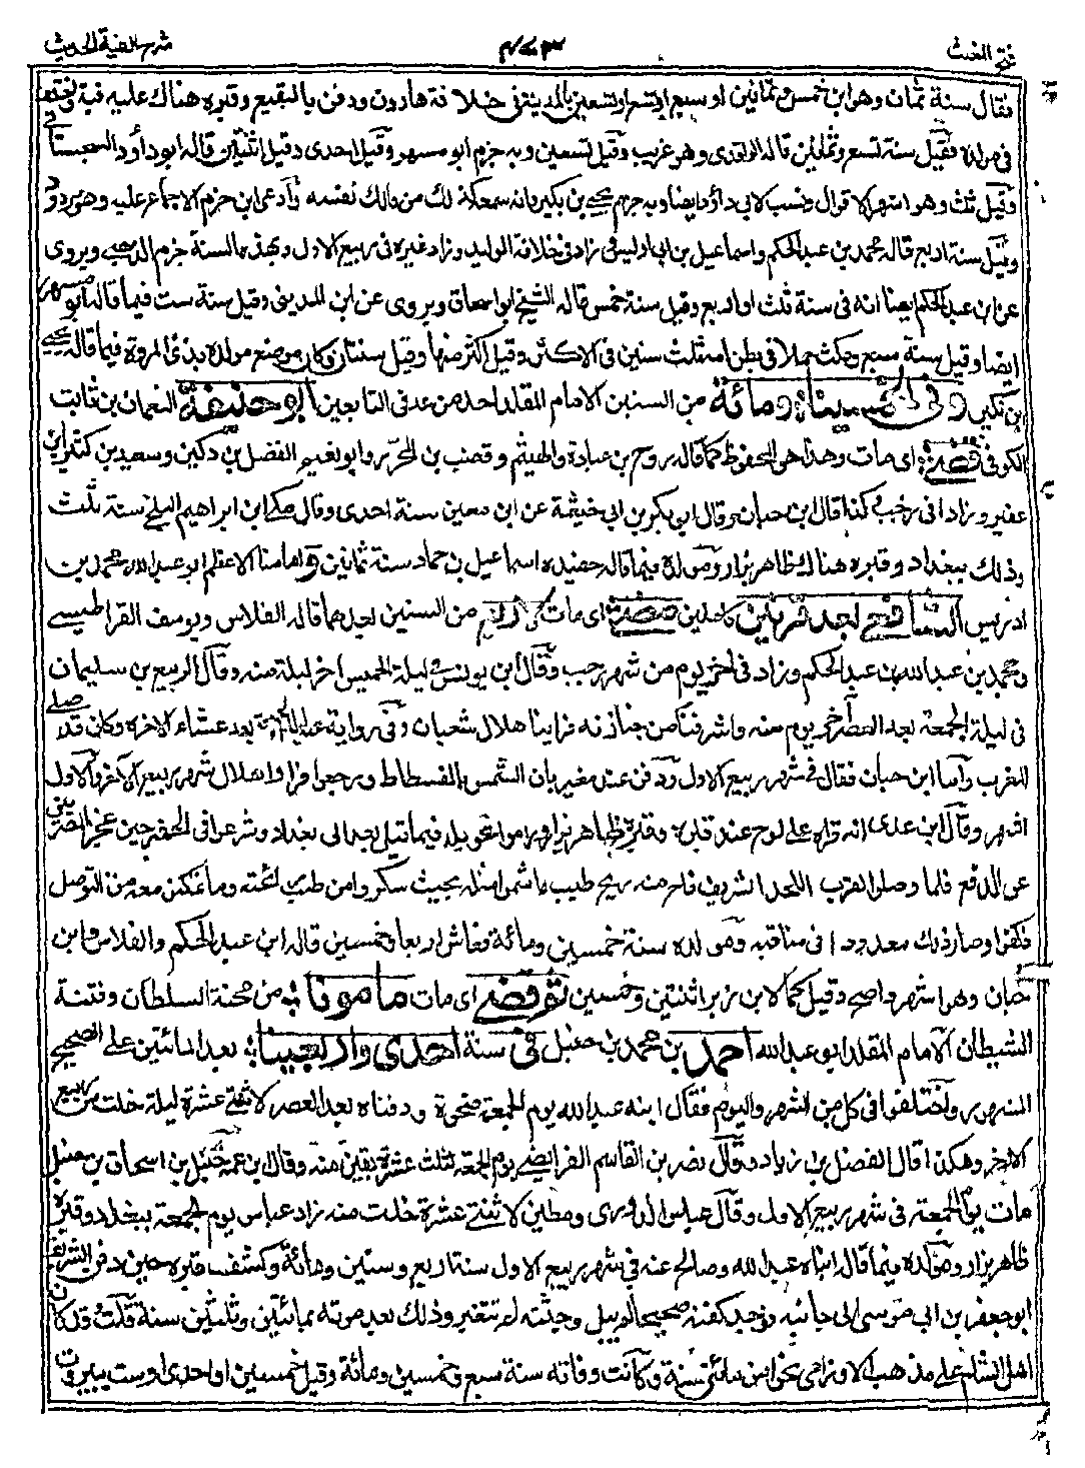 فتح المغيث
شرح الفية الحديث
فقال سنة ثمان وهو ابن خمس وثمانين او سبع او تسع او تسعين بالمدينة في خلافة هارون ودفن بالبقيع وقبره هناك عليه قبة
في مولده فقيل سنة تسع وثمانين قاله الواقدي وهو غريب وقيل تسعين وبه جزم ابو مسهر وقيل احدى وقيل اثنتين قاله ابو داؤد السجستاني
وقيل ثلث وهو اشهر الاقوال ونسب لابي داؤد ايضا وبه جزم يحيى بن بكير وانه سمع ذلك من مالك نفسه وادعى ابن حزم الاجماع عليه وهو مردود
وقيل سنة اربع قاله محمد بن عبد الحكم واسماعيل بن ابي اويس زاد في خلافة الوليد وزاد غيره في ربيع الاول وبهذه السنة جزم الذهبي ويروى
عن ابن عبد الحكم ايضا انه في سنة ثلث او اربع وقيل سنة خمس قاله الشيخ ابو اسحاق ويروى عن ابن المديني وقيل سنة ست فيما قاله ابو مسهر
ايضا وقيل سنة سبع ومكث حملا في بطن امه ثلث سنين في الاكثر وقيل اكثر منها وقيل سنتان وكان موضع مولده بذي المروة فيما قاله يحيى
ابن بكير وفي الخمسين ومائة من السنين الامام المقلد احد من عد في التابعين ابو حنيفة النعمان بن ثابت
الكوفي قضى اي مات وهذا هو المحفوظ كما قاله روح بن عبادة والهيثم وقعنب بن المحرر وابو نعيم الفضل بن دكين وسعيد بن كثير ابن
عفير وزاد في رجب وكذا قال ابن حبان وقال ابو بكر بن ابي خيثمة عن ابن معين سنة احدى وقال مكي ابن ابراهيم البلخي سنة ثلث
وذلك ببغداد وقبره هناك ظاهر يزار ومولده فيما قاله حفيده اسماعيل بن حماد سنة ثمانين واما امامنا الاعظم ابو عبد الله محمد بن
ادريس الشافعي بعد قرنين كاملين قضى اي مات في اربع من السنين بعدهما قاله الفلاس ويوسف القراطيسي
ومحمد بن عبد الله بن عبد الحكم وزاد في اخر يوم من شهر رجب وقال ابن يونس في ليلة الخميس اخر ليلة منه وقال الربيع بن سليمان
في ليلة الجمعة بعد العصر اخر يوم منه وانصرفنا من جنازته فراينا هلال شعبان وفي رواية عنه بعد عشاء الاخرة وكان قد صلى
المغرب واما ابن حبان فقال في شهر ربيع الاول ودفن عند مغيربان الشمس بالفسطاط ورجعوا فراوا هلال شهر ربيع الاخر والاول
اشهر وقال ابن عدي انه قراه على لوح عند قبره وقبره ظاهر يزار وراموا تحويله فيما قيل بعد الى بغداد وشرعوا في الحفر حين عجز المصريين
عن الدفع فلما وصلوا لقرب اللحد الشريف فاح منه ريح طيب ما شموا مثله بحيث سكروا من طيب رائحته وما تمكن معه من التوصل
فكفوا وصار ذلك معدودا في مناقبه ومولده سنة خمسين ومائة فعاش اربعا وخمسين قاله ابن عبد الحكم والفلاس وابن
حبان وهو اشهر واصح وقيل كما لابن زبر اثنتين وخمسين ثم قضى اي مات مامونا من محنة السلطان وفتنة
الشيطان الامام المقلد ابو عبد الله احمد بن محمد بن حنبل في سنة احدى واربعينا بعد المائتين على الصحيح
المشهور واختلفوا في كل من الشهر واليوم فقال ابنه عبد الله يوم الجمعة ضحوة ودفناه بعد العصر لاثنتي عشرة ليلة خلت من ربيع
الاخر وهكذا قال الفضل بن زياد وقال نصر بن القاسم الفرائضي يوم الجمعة لثلث عشرة بقين منه وقال ابن عمه حنبل بن اسحاق بن حنبل
مات يوم الجمعة في شهر ربيع الاول وقال عباس الدوري ومطين لاثنتي عشرة خلت منه زاد عباس يوم الجمعة ببغداد وقبره
ظاهر يزار ومولده فيما قال ابناه عبد الله وصالح عنه في شهر ربيع الاول سنة اربع وستين ومائة وكشف قبره حين دفن الشريف
ابو جعفر بن ابي موسى الى جانبه فوجد كفنه صحيحا لم يبل وجثته لم تتغير وذلك بعد موته بمائتين وثلثين سنة قلت وقد كان
اهل الشام على مذهب الاوزاعي نحوا من مائتي سنة وكانت وفاته سنة سبع وخمسين ومائة وقيل خمسين او احدى او ست ببيروت